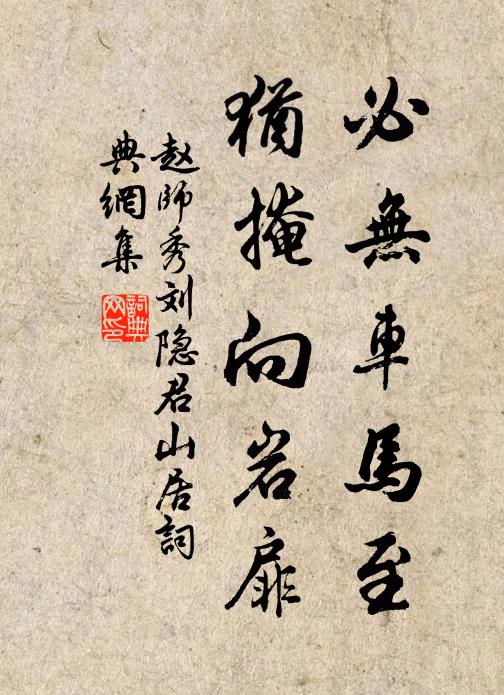 必無車馬至
猶掩向岩扉
赵師秀刘隐君山居詞
典網集
詞典
网印